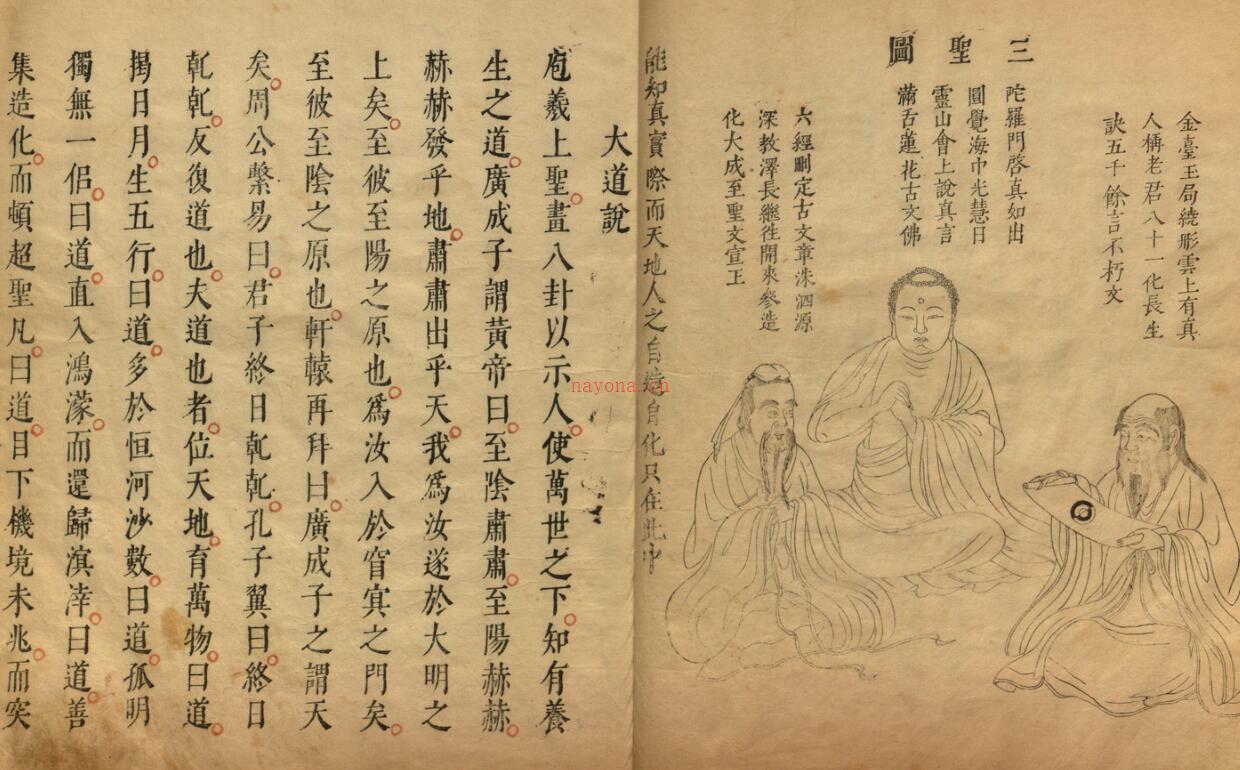 三聖圖
金臺玉局繞彤雲上有真
人稱老君八十一化長生
訣五千餘言不朽文
陀羅門啓真如出
圓覺海中光慧日
靈山會上說真言
滿舌蓮花古文佛
六經刪定古文章洙泗源
深教澤長繼徃開來參造
化大成至聖文宣王
能知真實際而天地人之自造自化只在此中
大道說
庖羲上聖畫八卦以示人使萬世之下知有養
生之道廣成子謂黃帝曰至陰肅肅至陽赫赫
赫赫發乎地肅肅出乎天我爲汝遂於大明之
上矣至彼至陽之原也爲汝入於窅㝠之門矣
至彼至陰之原也軒轅再拜曰廣成子之謂天
矣周公繫易曰君子終日乹乹孔子翼曰終日
乹乹反復道也夫道也者位天地育萬物曰道
揭日月生五行曰道多於恒河沙數曰道孤明
獨無一侣曰道直入鴻濛而還歸溟涬曰道善
集造化而頓超聖凡曰道目下機境未兆而突
nayona.cn